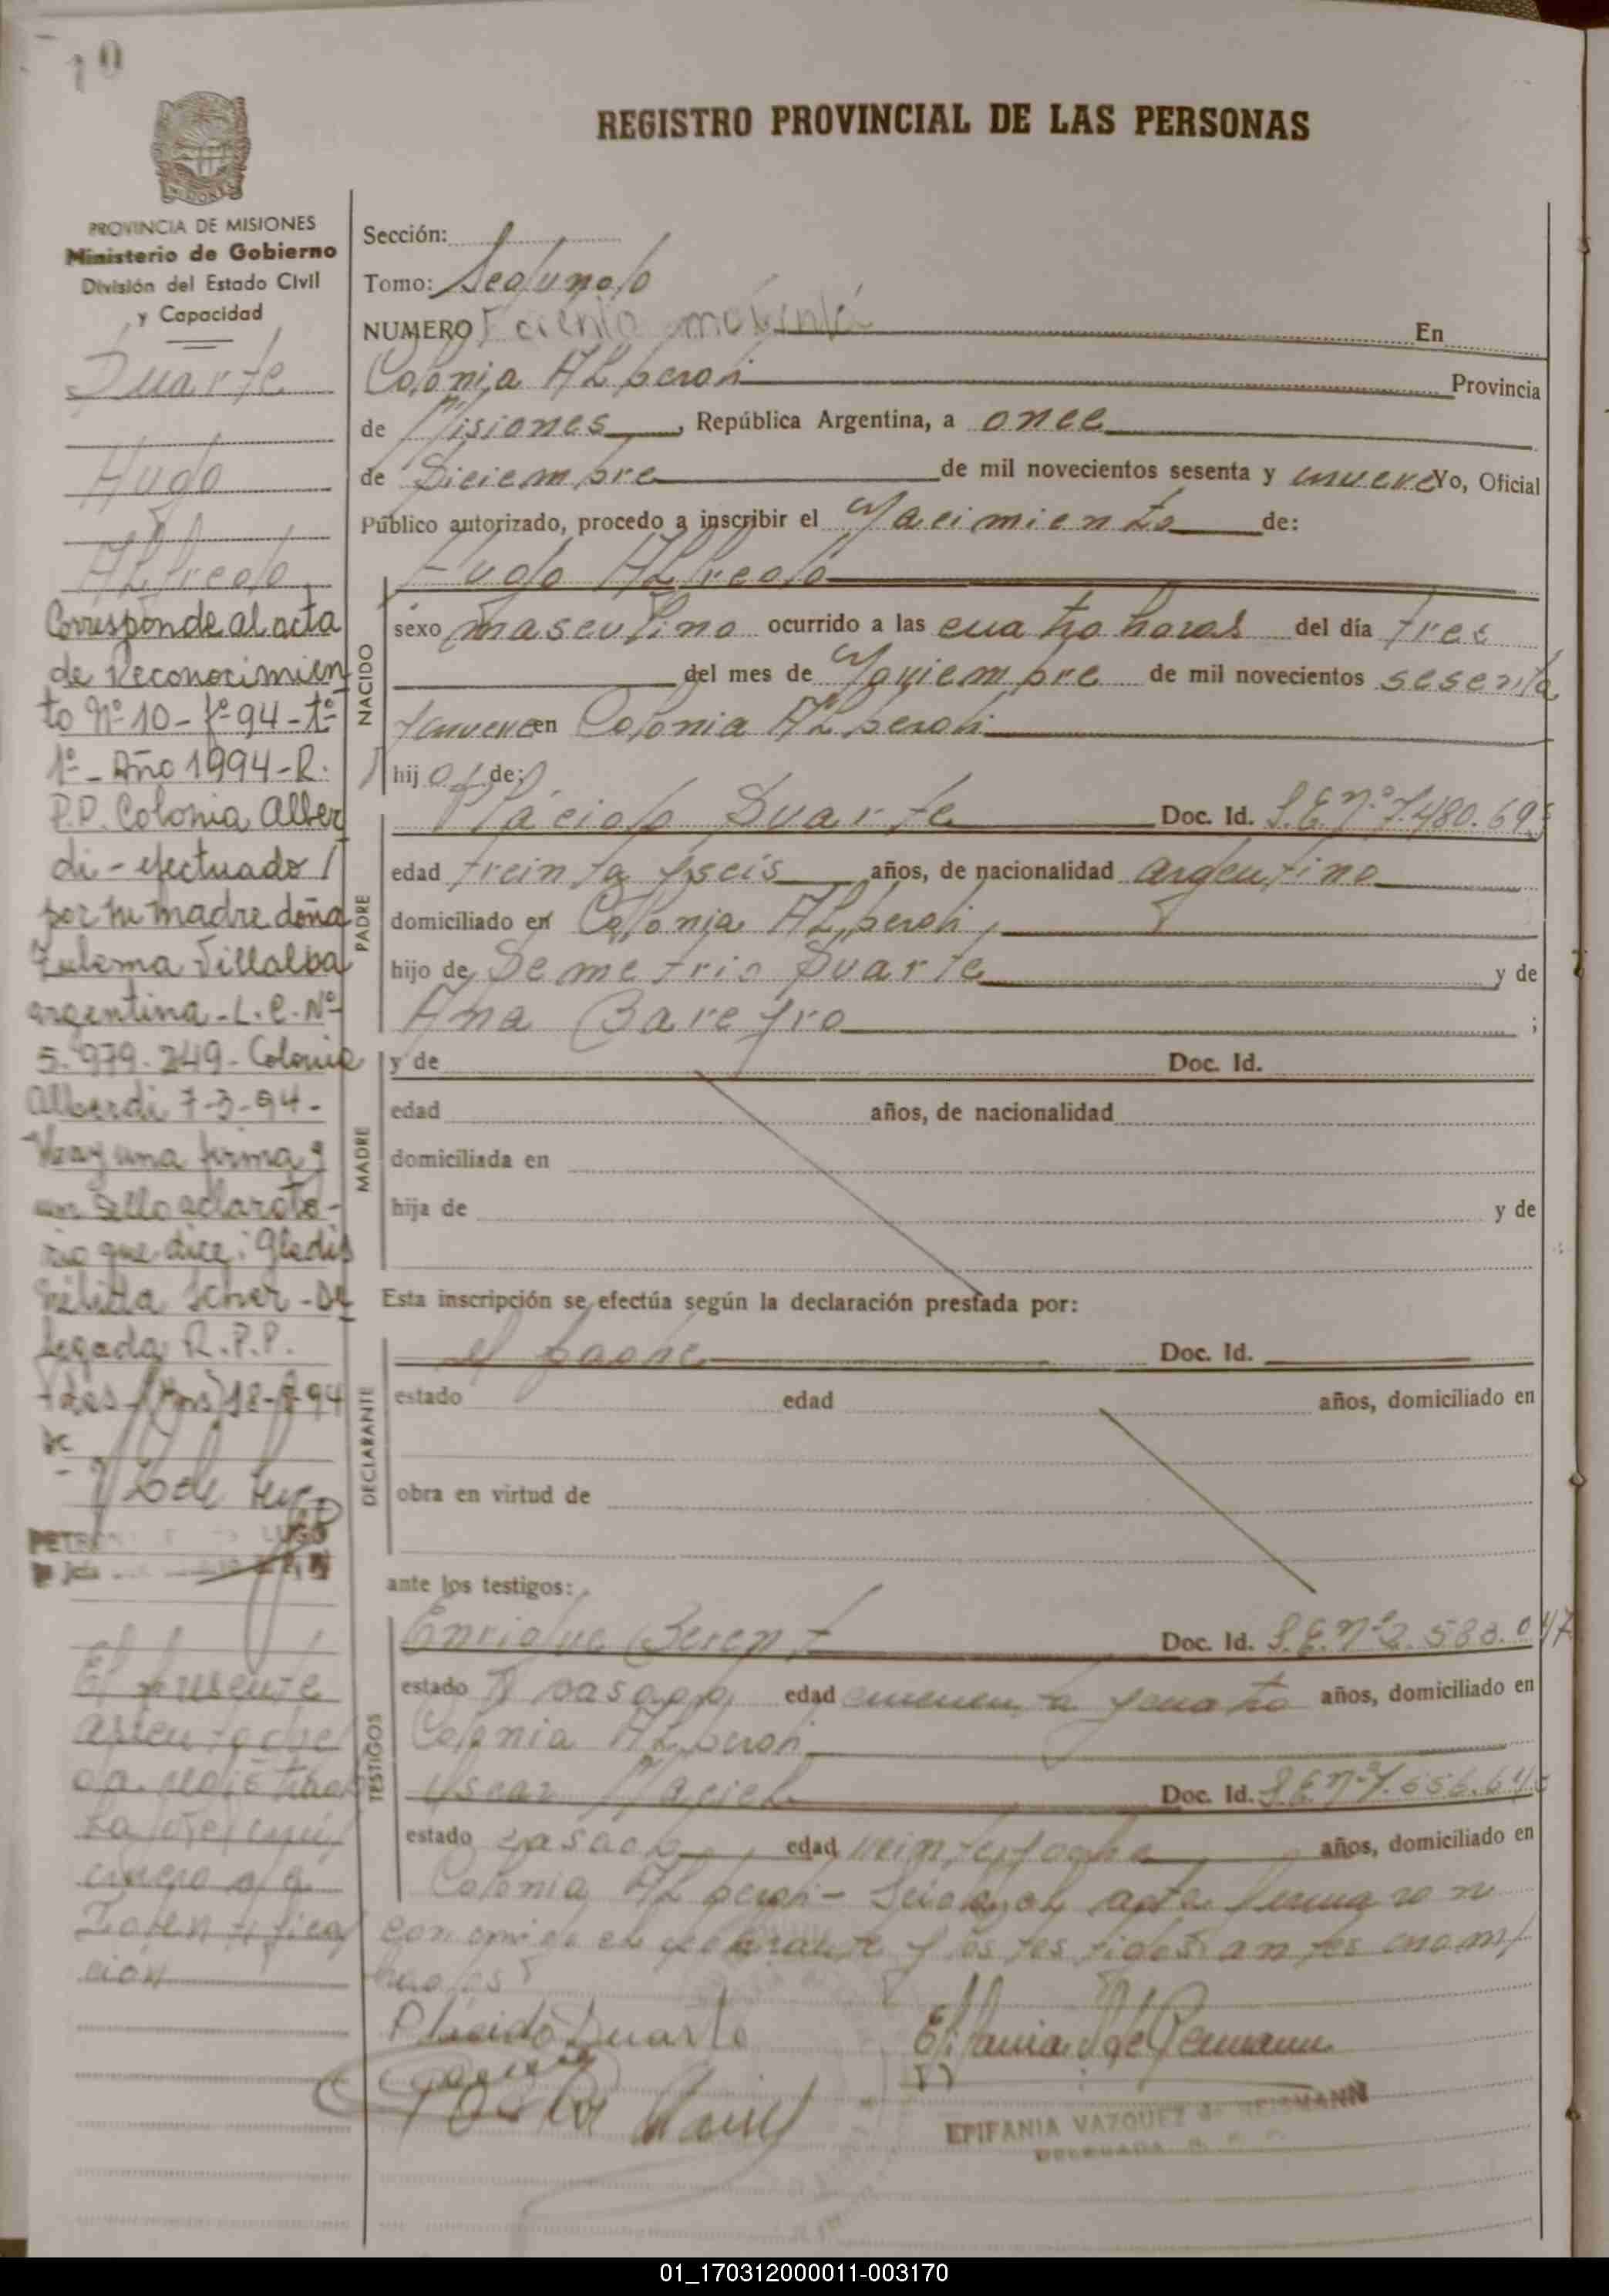 10
REGISTRO PROVINCIAL DE LAS PERSONAS
PROVINCIA DE MISIONES
Ministerio de Gobierno
División del Estado Civil
y Capacidad
Duarte
Hugo
Alfredo
Corresponde al acta
de Reconocimien
to Nº 10 - Fº 94 - Tº
1º - Año 1994 - R.
P.P. Colonia Alber
di - efectuado
por su madre doña
Zulema Villalba
argentina - L.C. Nº
5.979.249 - Colonia
Alberdi 7-3-94 -
Hay una firma y
un sello aclarato-
rio que dice: Gladis
Nélida Scher - De
legada R.P.P.
LUGO
El presente
Identifica
ción
Sección:
Tomo: Segundo
NUMERO ciento noventa En
Colonia Alberdi Provincia
de Misiones, República Argentina, a once
de Diciembre de mil novecientos sesenta y nueve Yo, Oficial
Público autorizado, procedo a inscribir el Nacimiento de:
Hugo Alfredo
NACIDO
sexo masculino ocurrido a las cuatro horas del día tres
del mes de Noviembre de mil novecientos sesenta
y nueve en Colonia Alberdi
hijo de:
PADRE
Plácido Duarte Doc. Id. L.E. Nº 7.480.695
edad treinta y seis años, de nacionalidad argentino
domiciliado en Colonia Alberdi,
hijo de Demetrio Duarte y de
Ana Bareyro ;
MADRE
y de Doc. Id.
edad años, de nacionalidad
domiciliada en
hija de y de
Esta inscripción se efectúa según la declaración prestada por:
DECLARANTE
el padre Doc. Id.
estado edad años, domiciliado en
obra en virtud de
ante los testigos:
TESTIGOS
Enrique Berent Doc. Id. L.E. Nº 2.583.047
estado casado edad cincuenta y cuatro años, domiciliado en
Colonia Alberdi
Oscar Maciel Doc. Id. L.E. Nº
estado casado edad veintiocho años, domiciliado en
Colonia Alberdi - Leida el acta firmaron
conmigo el declarante y los testigos antes nom
brados
Plácido Duarte
EPIFANIA VAZQUEZ de REISMANN
DELEGADA
01_170312000011-003170